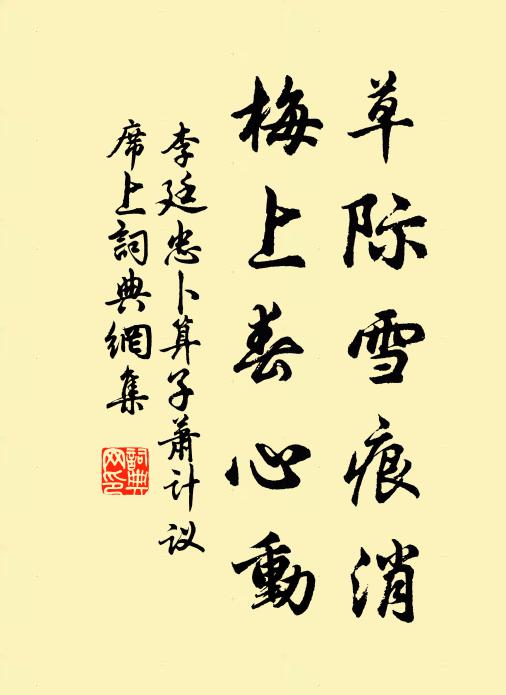 草际雪痕消
梅上春心動
李廷忠卜算子萧计议
席上詞典網集
詞典网印